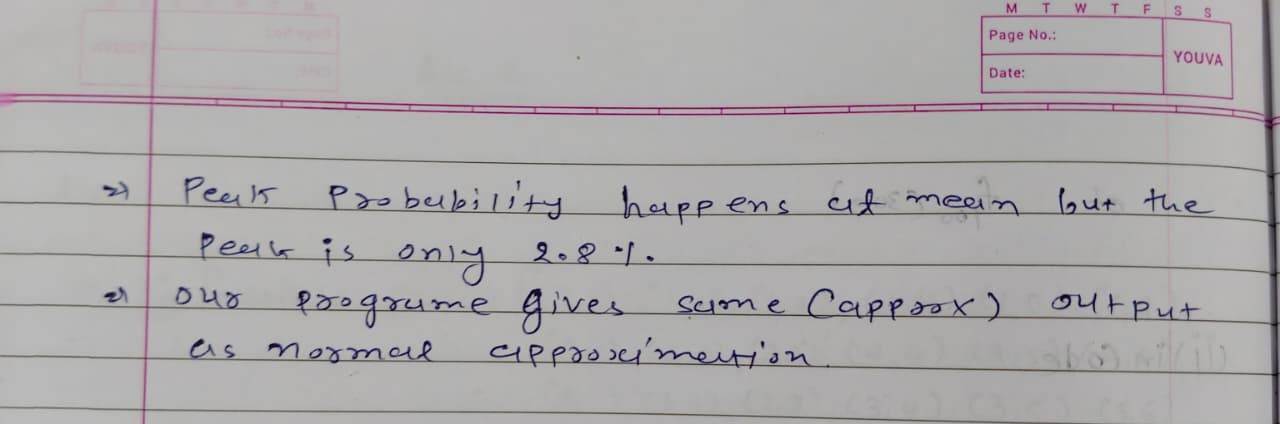 M T W T F S S
Page No.:
YOUVA
Date:
⇒) Peak Probability happens at mean but the
Peak is only 2.8 %.
⇒) our programe gives same (approx) output
as normal approximation.